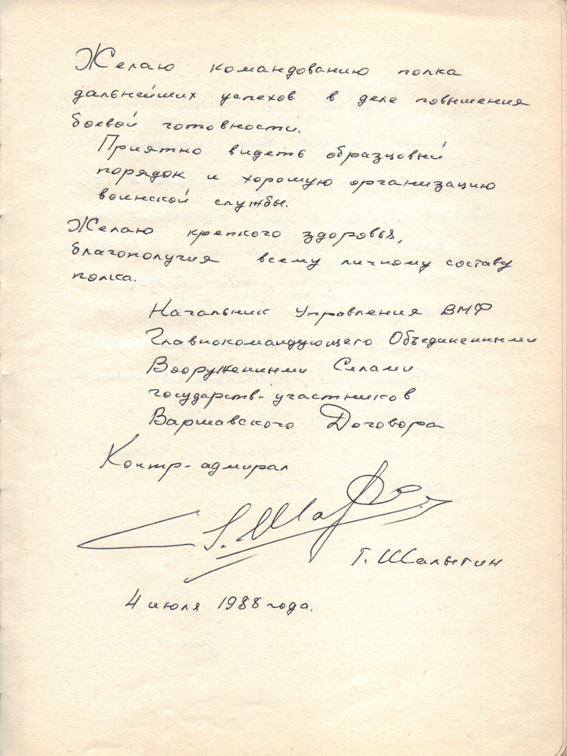 Желаю командованию полка
дальнейших успехов в деле повышения
боевой готовности.
Приятно видеть образцовый
порядок и хорошую организацию
воинской службы.
Желаю крепкого здоровья,
благополучия всему личному составу
полка.
Начальник Управления ВМФ
Главнокомандующего Объединенными
Вооруженными Силами
государств-участников
Варшавского Договора
Контр-адмирал
Г. Шалыгин
4 июля 1988 года.